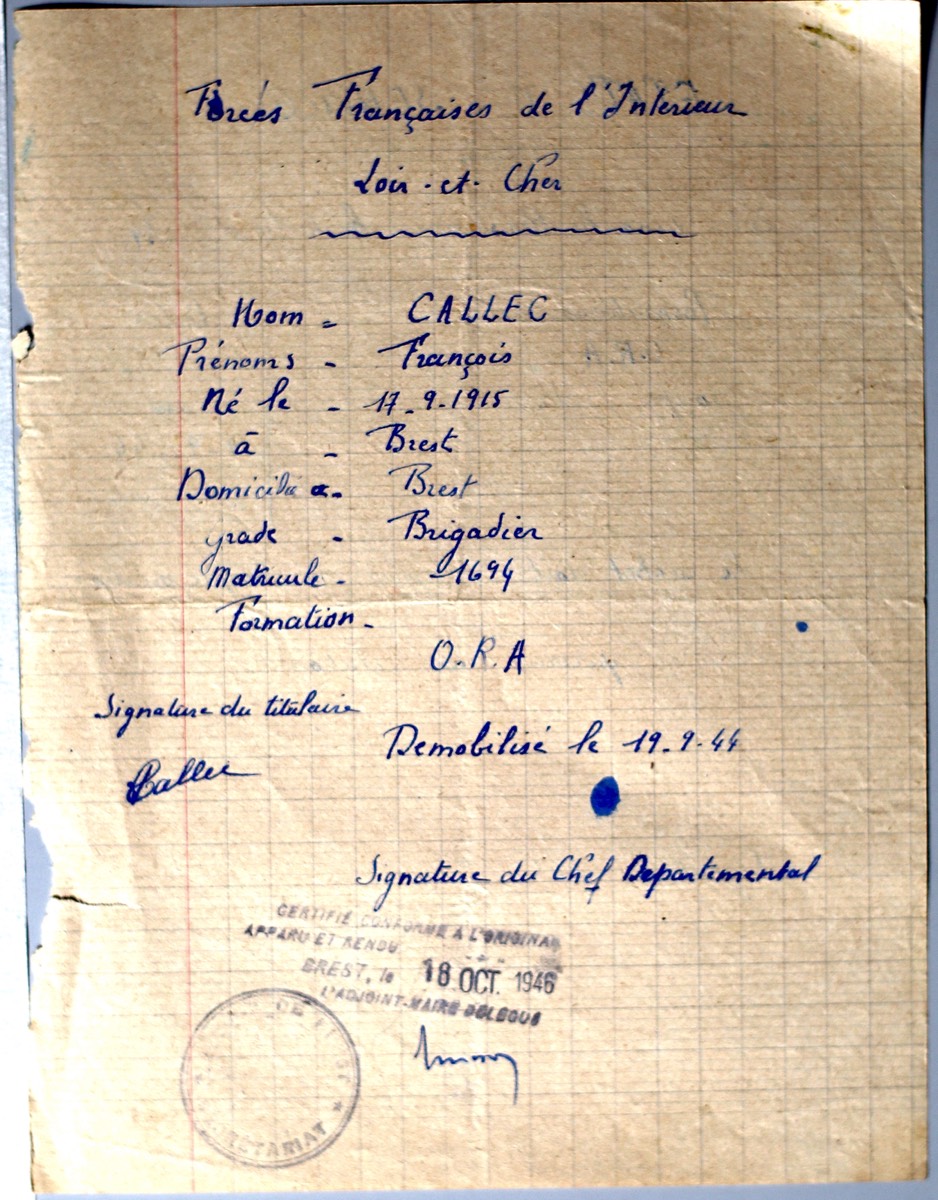 Forces Françaises de l'Interieur
Loir-et-Cher
Nom - CALLEC
Prénoms - François
Né le - 17-9-1915
à - Brest
Domicile - Brest
grade - Brigadier
Matricule - 1694
Formation -
O.R.A
Signature du titulaire
Demobilisé le 19.9.44
Callec
Signature du Chef Departemental
CERTIFIÉ CONFORME A L'ORIGINAL
APPARU ET RENDU
BREST, le 18 OCT. 1946
L'ADJOINT-MAIRE DÉLÉGUÉ